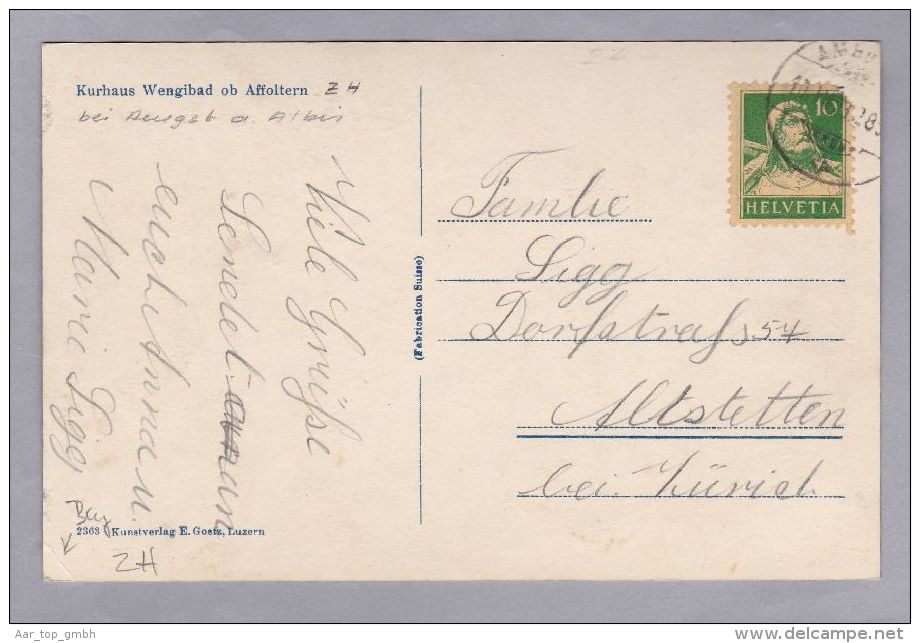 Kurhaus Wengibad ob Affoltern ZH
bei Aeugst a. Albis
Viele Grüsse
Sendet an
euch Anna u.
Marie Sigg
Familie
Sigg
Dorfstrass 54
Altstetten
bei Zürich
(Fabrication Suisse)
10
HELVETIA
2363 Kunstverlag E. Goetz, Luzern
ZH
Aar_top_gmbh
www.delcampe.net